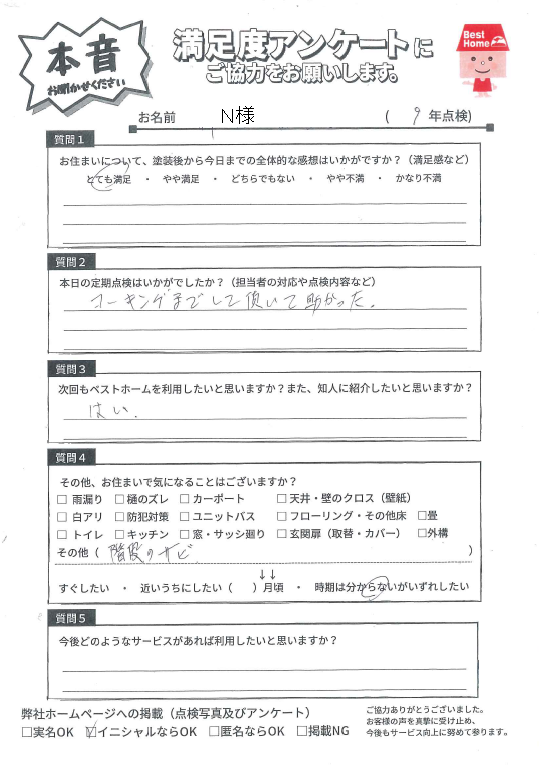 本音
お聞かせください
満足度アンケートに
ご協力をお願いします。
Best
Home
お名前 N様 ( 9 年点検)
質問1
お住まいについて、塗装後から今日までの全体的な感想はいかがですか?(満足感など)
とても満足 ・ やや満足 ・ どちらでもない ・ やや不満 ・ かなり不満
質問2
本日の定期点検はいかがでしたか?(担当者の対応や点検内容など)
コーキングまでして頂いて助かった。
質問3
次回もベストホームを利用したいと思いますか?また、知人に紹介したいと思いますか?
はい.
質問4
その他、お住まいで気になることはございますか?
□ 雨漏り □ 樋のズレ □ カーポート □ 天井・壁のクロス(壁紙)
□ 白アリ □ 防犯対策 □ ユニットバス □ フローリング・その他床 □畳
□ トイレ □ キッチン □ 窓・サッシ廻り □ 玄関扉(取替・カバー) □外構
その他( 階段のサビ )
↓↓
すぐしたい ・ 近いうちにしたい( )月頃 ・ 時期は分からないがいずれしたい
質問5
今後どのようなサービスがあれば利用したいと思いますか?
弊社ホームページへの掲載(点検写真及びアンケート)
□実名OK ☑イニシャルならOK □匿名ならOK □掲載NG
ご協力ありがとうございました。
お客様の声を真摯に受け止め、
今後もサービス向上に努めて参ります。